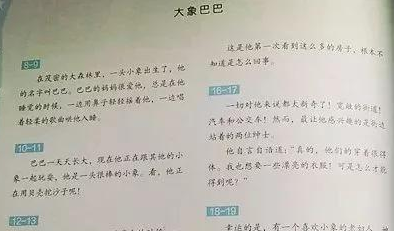 大象巴巴
8-9
在茂密的大森林里，一头小象出生了，他
的名字叫巴巴。巴巴的妈妈很爱他，总是在他
睡觉的时候，一边用鼻子轻轻摇着他，一边唱
着轻柔的歌曲哄他入睡。
10-11
巴巴一天天长大，现在他正在跟其他的小
象一起玩耍，他是一头很棒的小象。看，他正
在用贝壳挖沙子呢！
12-13
这是他第一次看到这么多的房子，根本不
知道是怎么回事。
16-17
一切对他来说都太新奇了！宽敞的街道！
汽车和公交车！然而，最让他感兴趣的是街边
站着的两位绅士。
他自言自语道：“真的，他们的穿着很得
体。我也想要一些漂亮的衣服！可是怎么才能
得到呢？”
18-19
幸运的是，有一个喜欢小象的老妇人，